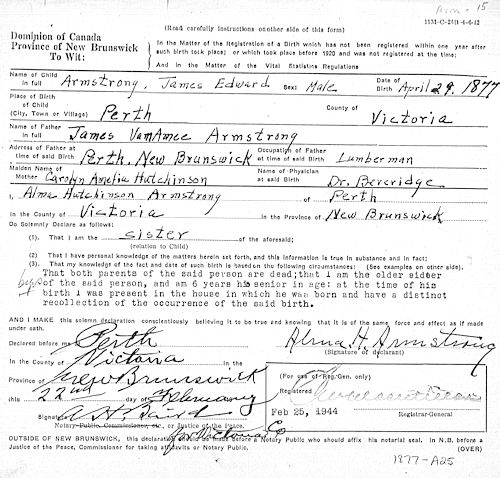 (Read carefully instructions on other side of this form)
1131-C-20D-4-6-42
Dominion of Canada
Province of New Brunswick
To Wit:
In the Matter of the Registration of a Birth which has not been registered within one year after
such birth took place; or which took place before 1920 and was not registered at the time;
And in the Matter of the Vital Statistics Regulations
Name of Child in full Armstrong, James Edward Sex Male Date of Birth April 29. 1877
Place of Birth of Child (City, Town or Village) Perth County of Victoria
Name of Father in full James VanAmee Armstrong
Address of Father at time of said Birth Perth, New Brunswick Occupation of Father at time of said Birth Lumberman
Maiden Name of Mother Carolyn Amelia Hutchinson Name of Physician at said Birth Dr. Bercridge
I, Alma Hutchinson Armstrong of Perth
In the County of Victoria in the Province of New Brunswick
Do Solemnly Declare as follows:
(1). That I am the sister of the aforesaid;
(relation to Child)
(2) That I have personal knowledge of the matters herein set forth, and this information is true in substance and in fact;
(3) That my knowledge of the fact and date of such birth is based on the following circumstances: (See examples on other side).
That both parents of the said person are dead; that I am the older sister
of the said person, and am 6 years his senior in age: at the time of his
birth I was present in the house in which he was born and have a distinct
recollection of the occurrence of the said birth.
AND I MAKE this solemn declaration conscientiously believing it to be true and knowing that it is of the same force and effect as if made
under oath.
Declared before me Perth
in the County of Victoria in the
Province of New Brunswick
this 22nd day of February
Alma H. Armstrong
(Signature of declarant)
Signature A H Baird
Notary Public, Commissioner, etc., or Justice of the Peace.
for Victoria Co
(For use of Reg. Gen. only)
Registered
Feb 25, 1944 Registrar-General
OUTSIDE OF NEW BRUNSWICK, this declaration should be made before a Notary Public who should affix his notarial seal. In N.B. before a
Justice of the Peace, Commissioner for taking affidavits or Notary Public. (OVER)
1877-A25